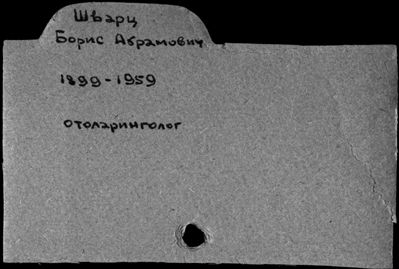 Шварц
Борис Абрамович
1899-1959
отоларинголог